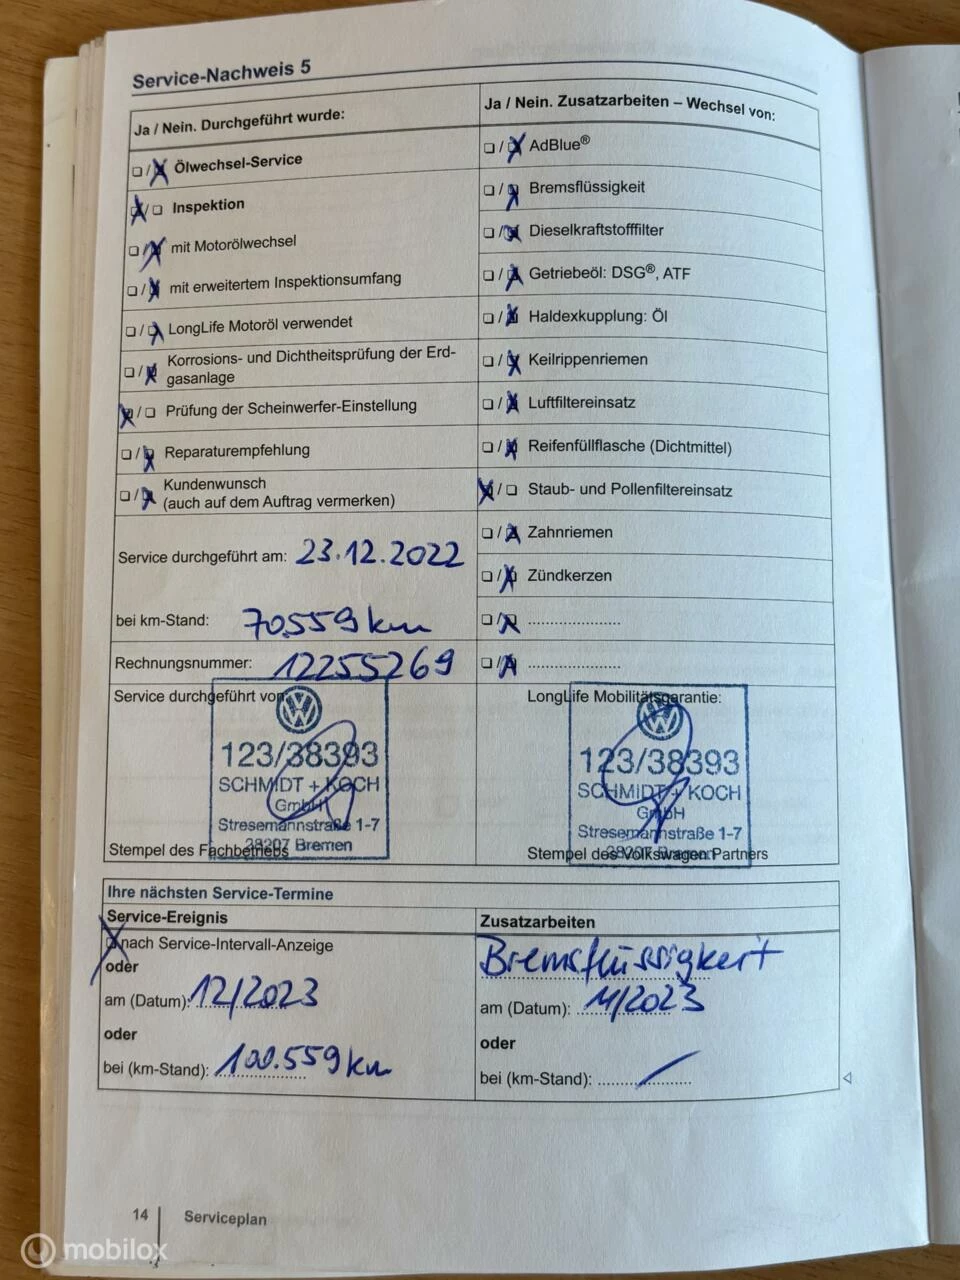 Service-Nachweis 5
Ja / Nein. Durchgeführt wurde:
☐ / ☒ Ölwechsel-Service
☒ / ☐ Inspektion
☐ / ☒ mit Motorölwechsel
☐ / ☒ mit erweitertem Inspektionsumfang
☐ / ☒ LongLife Motoröl verwendet
☐ / ☒ Korrosions- und Dichtheitsprüfung der Erd-
gasanlage
☒ / ☐ Prüfung der Scheinwerfer-Einstellung
☐ / ☒ Reparaturempfehlung
☐ / ☒ Kundenwunsch
(auch auf dem Auftrag vermerken)
Service durchgeführt am: 23.12.2022
bei km-Stand: 70.559 km
Rechnungsnummer: 12255269
Service durchgeführt von:
123/38393
SCHMIDT + KOCH
GmbH
Stresemannstraße 1-7
28207 Bremen
Stempel des Fachbetriebs
Ja / Nein. Zusatzarbeiten – Wechsel von:
☐ / ☒ AdBlue®
☐ / ☒ Bremsflüssigkeit
☐ / ☒ Dieselkraftstofffilter
☐ / ☒ Getriebeöl: DSG®, ATF
☐ / ☒ Haldexkupplung: Öl
☐ / ☒ Keilrippenriemen
☐ / ☒ Luftfiltereinsatz
☐ / ☒ Reifenfüllflasche (Dichtmittel)
☒ / ☐ Staub- und Pollenfiltereinsatz
☐ / ☒ Zahnriemen
☐ / ☒ Zündkerzen
☐ / ☒ .....................
☐ / ☒ .....................
LongLife Mobilitätsgarantie:
123/38393
SCHMIDT + KOCH
GmbH
Stresemannstraße 1-7
28207 Bremen
Stempel des Volkswagen Partners
Ihre nächsten Service-Termine
Service-Ereignis
☒ nach Service-Intervall-Anzeige
oder
am (Datum): 12/2023
oder
bei (km-Stand): 100.559 km
Zusatzarbeiten
Bremsflüssigkeit
am (Datum): 11/2023
oder
bei (km-Stand): /
14 Serviceplan
mobilox